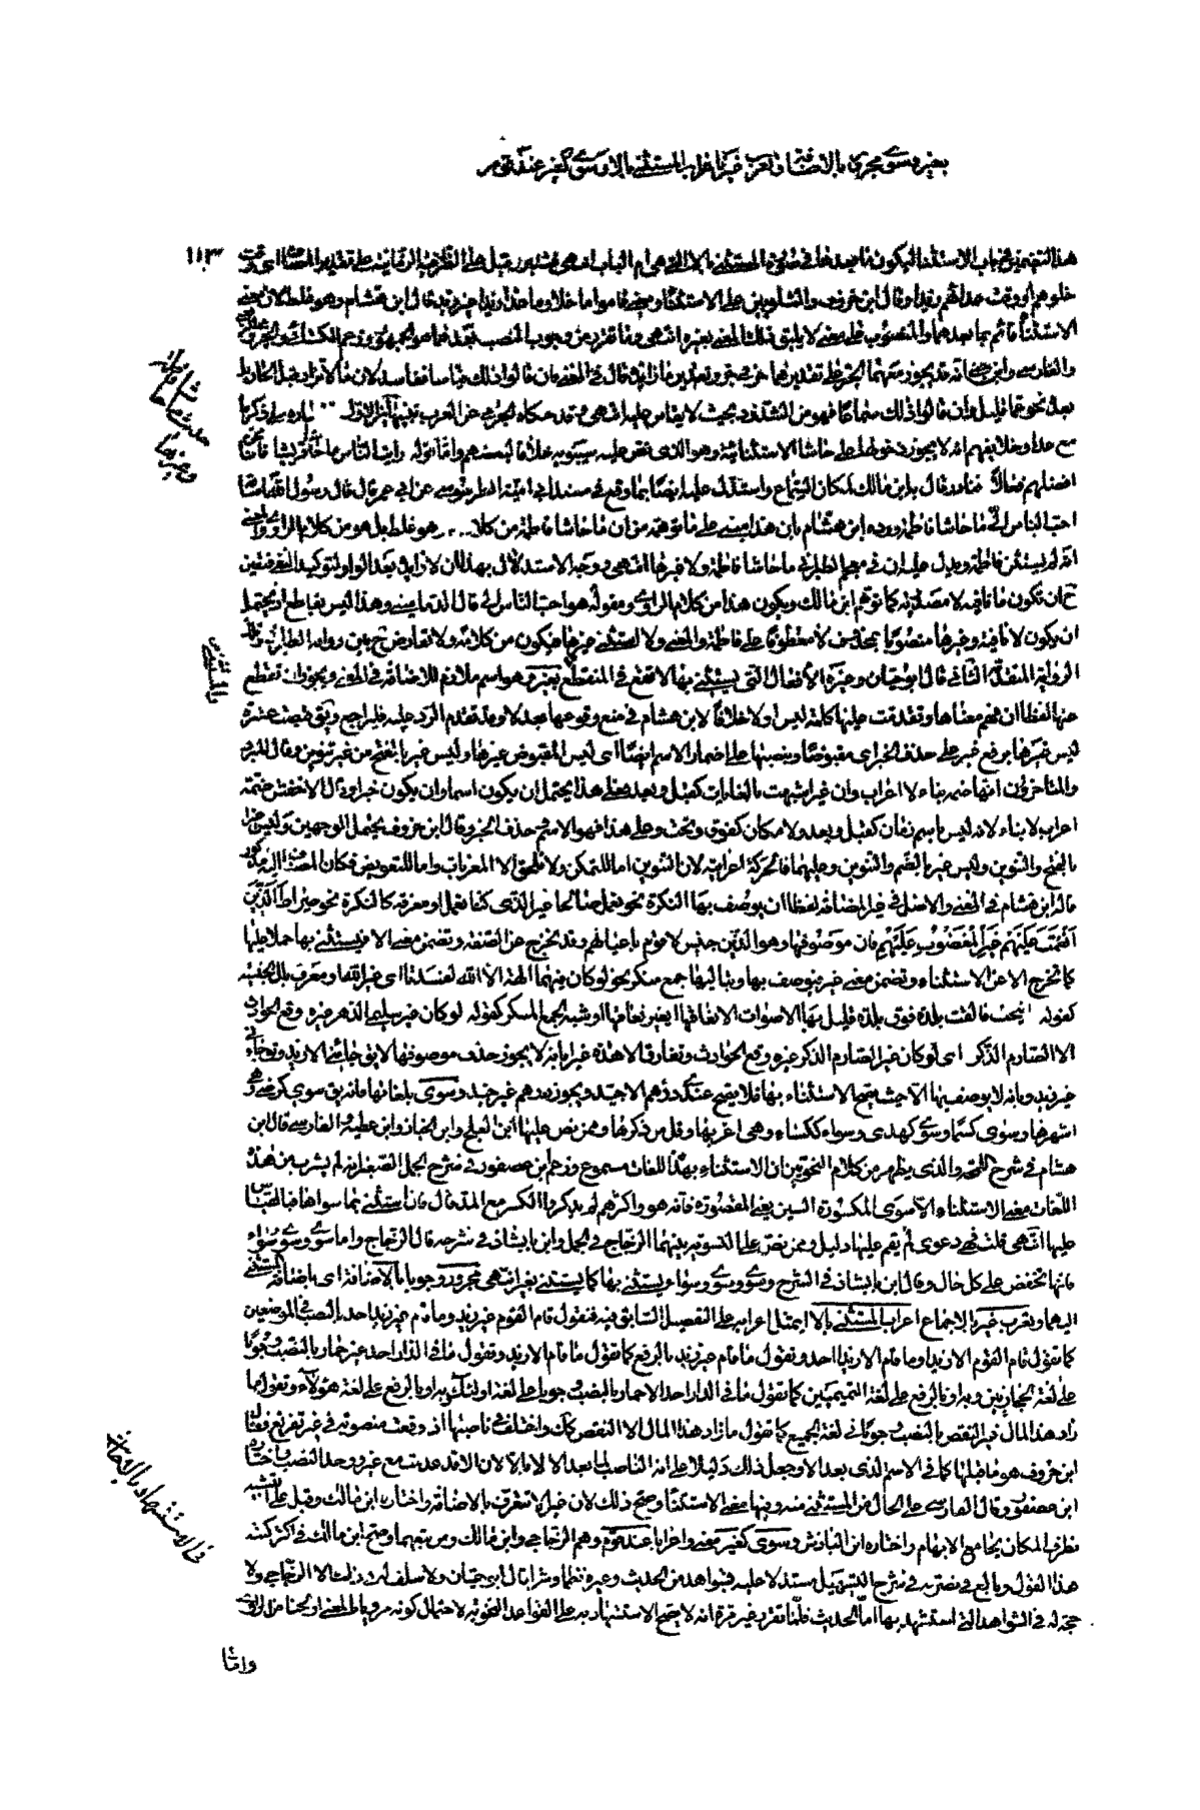 بغير وسوى مجرور بالاضافة وتعرب غير باعراب المستثنى بالا وسوى كغير عند قوم
١١٣
خلوهم او وقت مجاوزتهم زيدا وقال ابن خروف والشلوبين على الاستثناء ومعنى قاموا ما خلا زيدا وما خلا زيدا غير زيد قال ابن هشام وهو غلط لان معنى
الاستثناء قائم بما بعدهما والمنصوب على معنى لا يليق ذلك المعنى بغيره انتهى وما تقرر من وجوب النصب بعد هما هو الجمهور وزعم الكسائي والجرمي
والفارسي وابن جني انه قد يجوز معهما الجر على تقديرهما حرفي جر وتقدير ما زائدة قال في المغني فان قالوا ذلك قياسا ففاسد لان ما لا تزاد قبل الجار بل
بعده نحو عما قليل وان قالوا ذلك سماعا فهو من الشذوذ بحيث لا يقاس عليه انتهى وقد حكاه الجرمي عن العرب
مع خلا وخلا يفهم انه لا يجوز دخولها على حاشا الاستثنائية وهو الذي نص عليه سيبويه خلافا لبعضهم واما قوله رايت الناس ما حاشا قريشا فانا نحن
افضلهم فعالا فنادر وقال ابن مالك لمكان السماع واستدل عليه ايضا بما وقع في مسند ابي امية الطرسوسي عن ابن عمر قال قال رسول الله اسامة
احب الناس الي ما حاشا فاطمة ورده ابن هشام بان هذا مبني على ما توهمه من ان ما حاشا فاطمة من كلامه هو غلط بل هو من كلام الراوي والمعنى
انه لم يستثن فاطمة ويدل عليه ان في معجم الطبراني ما حاشا فاطمة ولا غيرها انتهى ووجه الاستدلال بهذا ان لا زائدة بعد الواو لتوكيد النفي فتعين
ح ان تكون ما نافية لا مصدرية كما توهم ابن مالك ويكون هذا من كلام الراوي ومقوله هو احب الناس الي قال الدماميني وهذا ليس بقاطع اذ يحتمل
ان يكون لا نافية وغيرها منصوبا بمحذوف لا معطوفا على فاطمة والمعنى ولا استثنى غيرها فيكون من كلامه ولا تعارض ح بين رواية الطبراني
الرواية المتقدمة الثاني قال ابو حيان وغيره الافعال التي يستثنى بها لا تقع في المنقطع بغير وهو اسم ملازم للاضافة في المعنى ويجوز ان تقطع
عنها لفظا ان فهم معناها وتقدمت عليها كلمة ليس ولا خلافا لابن هشام في منع وقوعها بعد لا وقد تقدم الرد عليه فليراجع ويق قبضت عشرة
ليس غيرها برفع غير على حذف الخبر اي مقبوضا وبنصبها على اضمار الاسم ايضا اي ليس المقبوض غيرها وليس غير بالفتح من غير تنوين فقال المبرد
والمتاخرون انها ضمة بناء لا اعراب وان غير شبهت بالغايات كقبل وبعد فعلى هذا يحتمل ان يكون اسما وان يكون خبرا وقال الاخفش ضمة
اعراب لا بناء لانه ليس باسم زمان كقبل وبعد ولا مكان كفوق وتحت وعلى هذا فهو الاسم وحذف الخبر وقال ابن خروف يحتمل الوجهين وليس غيرا
بالفتح والتنوين وليس غير بالضم والتنوين وعليهما فالحركة اعرابية لان التنوين اما للتمكن ولا تلحق الا المعربات واما للتعويض فكان المضاف اليه مذكور
قاله ابن هشام في المغني والاصل في غير المضافة لفظا ان يوصف بها النكرة نحو نعمل صالحا غير الذي كنا نعمل او معرفة كالنكرة نحو صراط الذين
انعمت عليهم غير المغضوب عليهم فان موصوفها وهو الذين جنس لا قوم باعيانهم وقد يخرج عن الصفة وتضمن معنى الا فيستثنى بها حملا عليها
كما تخرج الا عن الاستثناء وتضمن معنى غير فيوصف بها وبتاليها جمع منكر نحو لو كان فيهما الهة الا الله لفسدتا اي غير الله ومعرف بلام الجنس
كقوله انيخت فالقت بلدة فوق بلدة قليل بها الاصوات الا بغامها اي غير بغامها او شبه الجمع المنكر كقوله لو كان غيري سليمى الدهر غيره وقع الحوادث
الا الصارم الذكر اي لو كان غير الصارم الذكر غيره وقع الحوادث وتفارق الا هذه غيرا بانه لا يجوز حذف موصوفها لا يق جاءني الا زيد ويق جاءني
غير زيد وبانه لا يوصف بها الا حيث يصح الاستثناء بها فلا يصح عندي درهم الا جيد ويجوز درهم غير جيد وسوى بلغاتها فانه يق سوى كرضى وهي
اشهرها وسوى كسما وسوى كهدى وسواء ككساء وهي اغربها وقل من ذكرها وممن نص عليها ابن العلج وابن الخباز وابن عطية والفارسي قال ابن
هشام في شرح اللمحة والذي يظهر من كلام النحويين ان الاستثناء بهذه اللغات مسموع وزعم ابن عصفور في شرح الجمل الصغير انه لم يشرب من هذه
اللغات معنى الاستثناء الا سوى المكسورة السين يعني المقصورة فانه هو واكثرهم لم يذكروا الكسر مع المد قال فان استثنى بما سواها فبالقياس
عليها انتهى قلت فهي دعوى لم يقم عليها دليل وممن نص على التسوية بينهما الزجاج في الجمل وابن بابشاذ في شرحه قال الزجاج واما سوى وسوى وسواء
فانها تخفض على كل حال وقال ابن بابشاذ في الشرح وسوى وسوى وسواء يستثنى بها كما يستثنى بغير انتهى مجرور وجوبا بالاضافة اي باضافة المستثنى
اليها وتعرب غير بالاجماع اعراب المستثنى بالا اي بمثل اعرابه على التفصيل السابق فيه فتقول قام القوم غير زيد وما قام غير زيد احد بالنصب في الموضعين
كما تقول قام القوم الا زيدا وما قام الا زيدا احد وتقول ما قام غير زيد بالرفع كما تقول ما قام الا زيد وتقول ما في الدار احد غير حمار بالنصب وجوبا
على لغة الحجازيين وبه او بالرفع على لغة التميميين كما تقول ما في الدار احد الا حمارا بالنصب وجوبا على لغة اولئك وبه او بالرفع على لغة هؤلاء وتقول ما
زاد هذا المال غير النقص بالنصب وجوبا في لغة الجميع كما تقول ما زاد هذا المال الا النقص كك واختلف في ناصبها اذ وقعت منصوبة في غير تفريغ فقال
ابن خروف هو ما قبلها كما في الاسم الذي بعد الا وجعل ذلك دليلا على انه الناصب لما بعد الا لا الا لان الا قد عدمت مع غير وجد النصب واختاره
ابن عصفور وقال الفارسي على الحال من المستثنى منه وفيها معنى الاستثناء وصح ذلك لان غير لا تتعرف بالاضافة واختاره ابن مالك وقيل على التشبيه
بظرف المكان بجامع الابهام واختاره ابن الباذش وسوى كغير معنى واعرابا عند قوم وهم الزجاجي وابن مالك ومن تبعهما وصحح ابن مالك في اكثر كتبه
هذا القول وبالغ في نصرته في شرح التسهيل مستدلا عليه بشواهد من الحديث وغيره نظما ونثرا قال ابو حيان ولا سلف له في ذلك الا الزجاجي ولا
حجة له في الشواهد التي استشهد بها اما الحديث فلما تقرر غير مرة انه لا يصح الاستشهاد به على القواعد النحوية لاحتمال كونه مرويا بالمعنى او لحنا من الراوي
واما
في الاستشهاد بالحديث